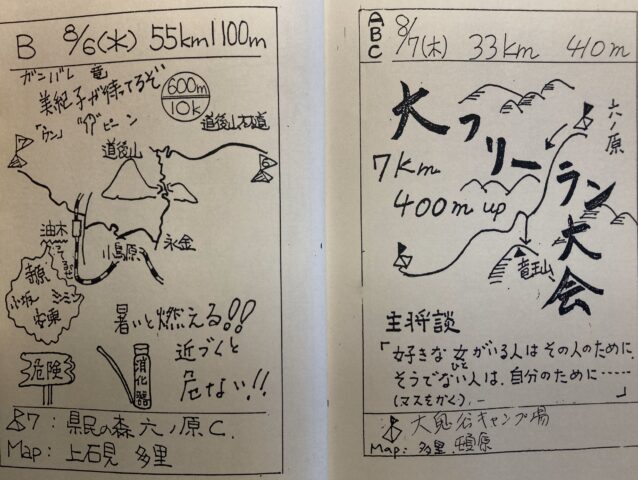 B 8/6(水) 55km 1100m
ガンバレ 竜
美紀子が待ってるぞ
600m
10k
「ウン」
道後山林道
道後山
7
6
油木
小鳥原
永金
寺原
小坂
安東
暑いと燃える!!
近づくと
危ない!!
危険
消化器
7:県民の森 六ノ原C.
Map: 上石見 多里
A
B
C
8/7(木) 33km 410m
大フリーラン大会
六ノ原
7km
400m up
竜王山
主将談
「好きな女がいる人はその人のために
そうでない人は、自分のために……
(マスをかく).ー 」
大鬼谷キャンプ場
Map: 多里